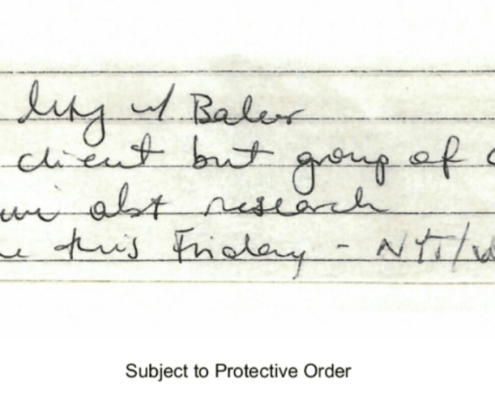 Mtg w/ Baker
client but group of
abt research
this Friday - NYT/
Subject to Protective Order